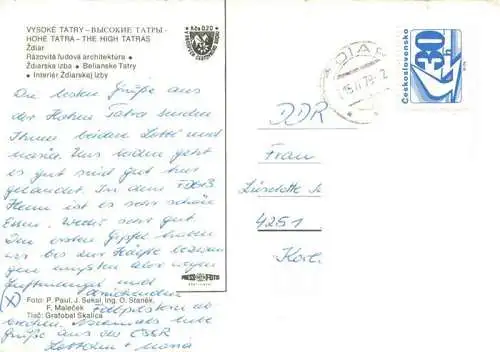 VYSOKÉ TATRY – ВЫСОКИЕ ТАТРЫ –
HOHE TATRA – THE HIGH TATRAS
Ždiar
Rázovitá ľudová architektúra ●
● Ždiarska izba ● Belianske Tatry
● Interiér Ždiarskej izby
Kčs 0,20
Die besten Grüße aus
der Hohen Tatra senden
Ihnen beiden
Maria. Uns beiden geht
es gut sind gut
gelandet. In dem FDGB
Heim ist es sehr schön
Essen. Wetter sehr gut.
Den ersten Gipfel haben
wir bis zur Hälfte
gen mußten aber wegen
und
ab
brechen. Nochmals liebe
Grüße aus der CSSR
+ Maria
Foto: P. Paul, J. Sekal, Ing. O. Staněk,
F. Maleček
Tlač: Grafobal Skalica
PRESS FOTO
ŽDIAR
15.11.79-12
Československo
30h
DDR
Frau
Lieselotte
4251